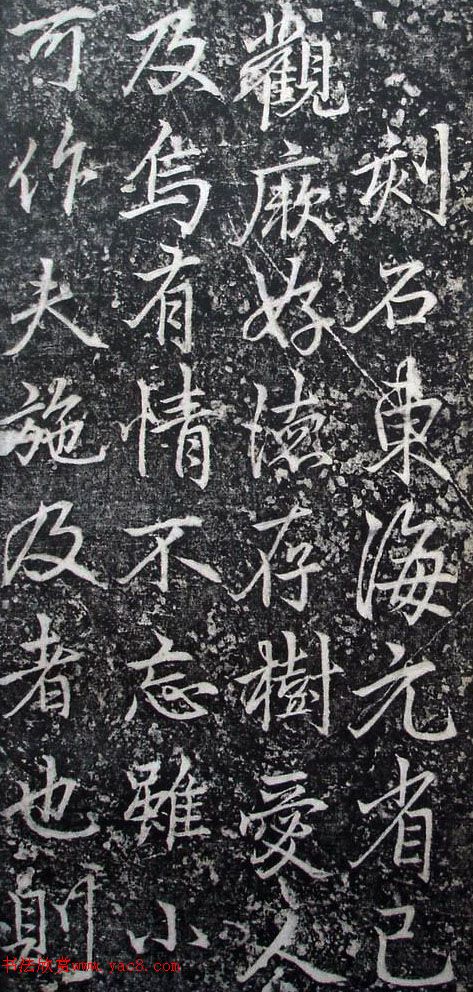 刻石東海元省己
觀厥好德存樹愛人
及烏有情不忘雖小
可作夫施及者也則
书法欣赏www.yac8.com